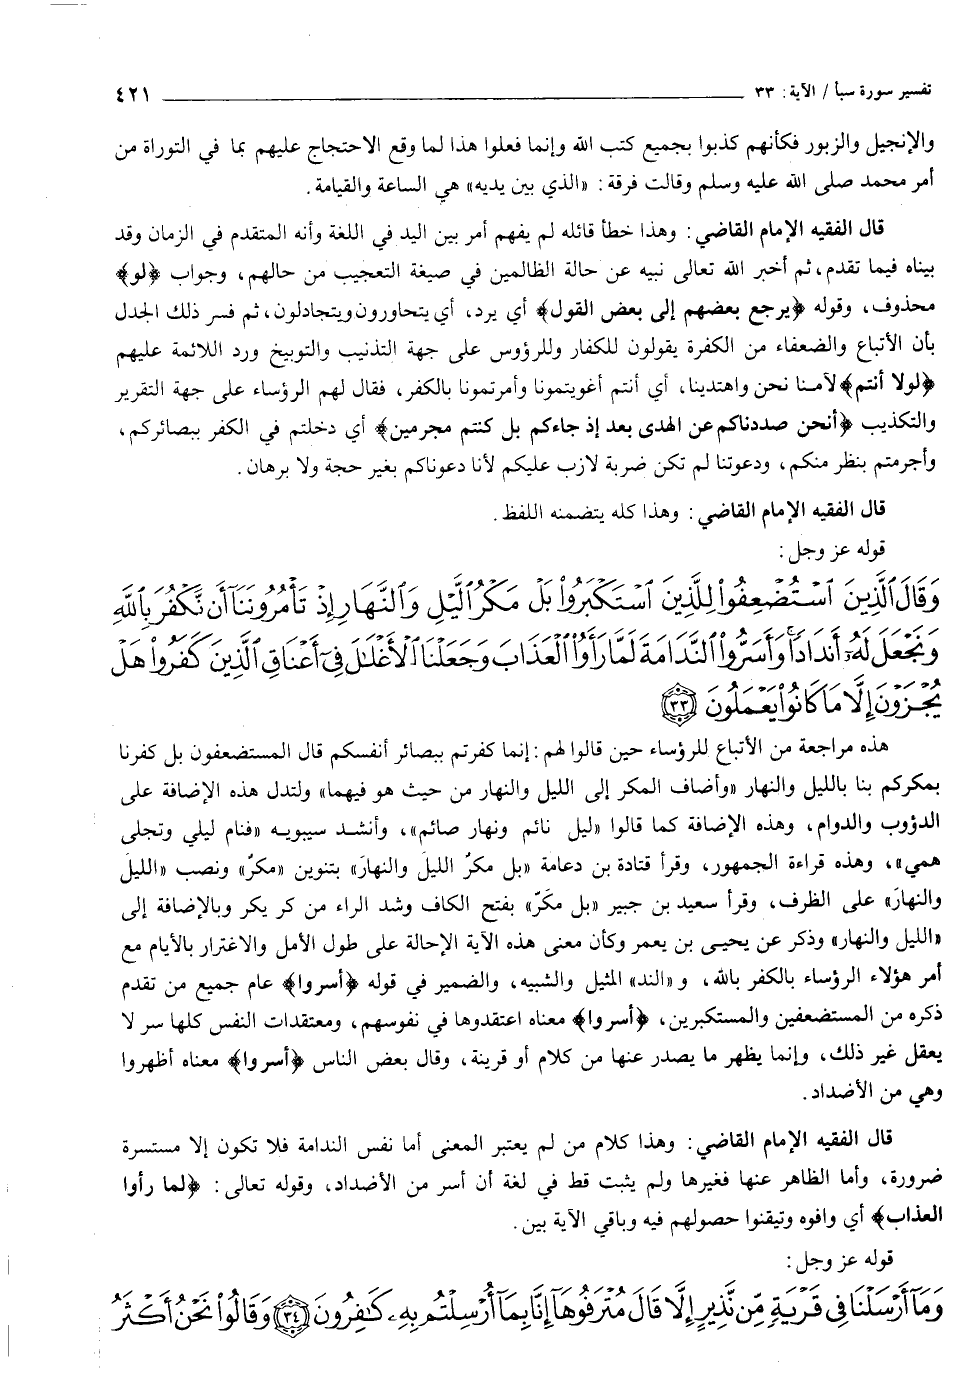 تفسير سورة سبأ / الآية: ٣٣ ــــــــــــــــــــ ٤٢١
والإنجيل والزبور فكأنهم كذبوا بجميع كتب الله وإنما فعلوا هذا لما وقع الاحتجاج عليهم بما في التوراة من
أمر محمد صلى الله عليه وسلم وقالت فرقة: «الذي بين يديه» هي الساعة والقيامة.
قال الفقيه الإمام القاضي: وهذا خطأ قائله لم يفهم أمر بين اليد في اللغة وأنه المتقدم في الزمان وقد
بيناه فيما تقدم، ثم أخبر الله تعالى نبيه عن حالة الظالمين في صيغة التعجيب من حالهم، وجواب ﴿لو﴾
محذوف، وقوله ﴿يرجع بعضهم إلى بعض القول﴾ أي يرد، أي يتحاورون ويتجادلون، ثم فسر ذلك الجدل
بأن الأتباع والضعفاء من الكفرة يقولون للكفار وللرؤوس على جهة التذنيب والتوبيخ ورد اللائمة عليهم
﴿لولا أنتم﴾ لآمنا نحن واهتدينا، أي أنتم أغويتمونا وأمرتمونا بالكفر، فقال لهم الرؤساء على جهة التقرير
والتكذيب ﴿أنحن صددناكم عن الهدى بعد إذ جاءكم بل كنتم مجرمين﴾ أي دخلتم في الكفر ببصائركم،
وأجرمتم بنظر منكم، ودعوتنا لم تكن ضربة لازب عليكم لأنا دعوناكم بغير حجة ولا برهان.
قال الفقيه الإمام القاضي: وهذا كله يتضمنه اللفظ.
قوله عز وجل:
وَقَالَ ٱلَّذِينَ ٱسْتُضْعِفُوا۟ لِلَّذِينَ ٱسْتَكْبَرُوا۟ بَلْ مَكْرُ ٱلَّيْلِ وَٱلنَّهَارِ إِذْ تَأْمُرُونَنَآ أَن نَّكْفُرَ بِٱللَّهِ
وَنَجْعَلَ لَهُۥٓ أَندَادًا ۚ وَأَسَرُّوا۟ ٱلنَّدَامَةَ لَمَّا رَأَوُا۟ ٱلْعَذَابَ وَجَعَلْنَا ٱلْأَغْلَـٰلَ فِىٓ أَعْنَاقِ ٱلَّذِينَ كَفَرُوا۟ هَلْ
يُجْزَوْنَ إِلَّا مَا كَانُوا۟ يَعْمَلُونَ ٣٣
هذه مراجعة من الأتباع للرؤساء حين قالوا لهم: إنما كفرتم ببصائر أنفسكم قال المستضعفون بل كفرنا
بمكركم بنا بالليل والنهار «وأضاف المكر إلى الليل والنهار من حيث هو فيهما» ولتدل هذه الإضافة على
الدؤوب والدوام، وهذه الإضافة كما قالوا «ليل نائم ونهار صائم»، وأنشد سيبويه «فنام ليلي وتجلى
همي»، وهذه قراءة الجمهور، وقرأ قتادة بن دعامة «بل مكرٌ الليلَ والنهارَ» بتنوين «مكرٌ» ونصب «الليلَ
والنهارَ» على الظرف، وقرأ سعيد بن جبير «بل مكَرّ» بفتح الكاف وشد الراء من كر يكر وبالإضافة إلى
«الليل والنهار» وذكر عن يحيى بن يعمر وكأن معنى هذه الآية الإحالة على طول الأمل والاغترار بالأيام مع
أمر هؤلاء الرؤساء بالكفر بالله، و«الند» المثيل والشبيه، والضمير في قوله ﴿أسروا﴾ عام جميع من تقدم
ذكره من المستضعفين والمستكبرين، ﴿أسروا﴾ معناه اعتقدوها في نفوسهم، ومعتقدات النفس كلها سر لا
يعقل غير ذلك، وإنما يظهر ما يصدر عنها من كلام أو قرينة، وقال بعض الناس ﴿أسروا﴾ معناه أظهروا
وهي من الأضداد.
قال الفقيه الإمام القاضي: وهذا كلام من لم يعتبر المعنى أما نفس الندامة فلا تكون إلا مستسرة
ضرورة، وأما الظاهر عنها فغيرها ولم يثبت قط في لغة أن أسر من الأضداد، وقوله تعالى: ﴿لما رأوا
العذاب﴾ أي وافوه وتيقنوا حصولهم فيه وباقي الآية بين.
قوله عز وجل:
وَمَآ أَرْسَلْنَا فِى قَرْيَةٍ مِّن نَّذِيرٍ إِلَّا قَالَ مُتْرَفُوهَآ إِنَّا بِمَآ أُرْسِلْتُم بِهِۦ كَـٰفِرُونَ ٣٤ وَقَالُوا۟ نَحْنُ أَكْثَرُ